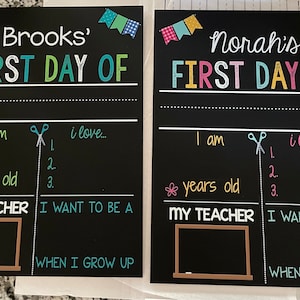 Brooks'
RST DAY OF
i love...
1.
2.
3.
old
CHER
I WANT TO BE A
WHEN I GROW UP
Norah's
FIRST DAY
I am
1.
2.
3.
years old
MY TEACHER
I WA
WHEN